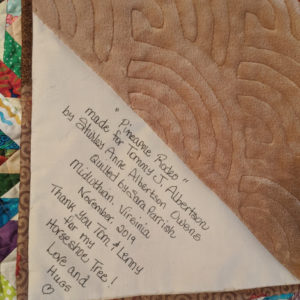 "Pineapple Rodeo"
made for Tommy J. Albertson
by Shirley Anne Albertson Owens
Quilted by Sara Parrish
Midlothian, Virginia
November 2019
Thank you Tom & Lenny
for my
Horseshoe Tree!
Love and
Hugs
♡